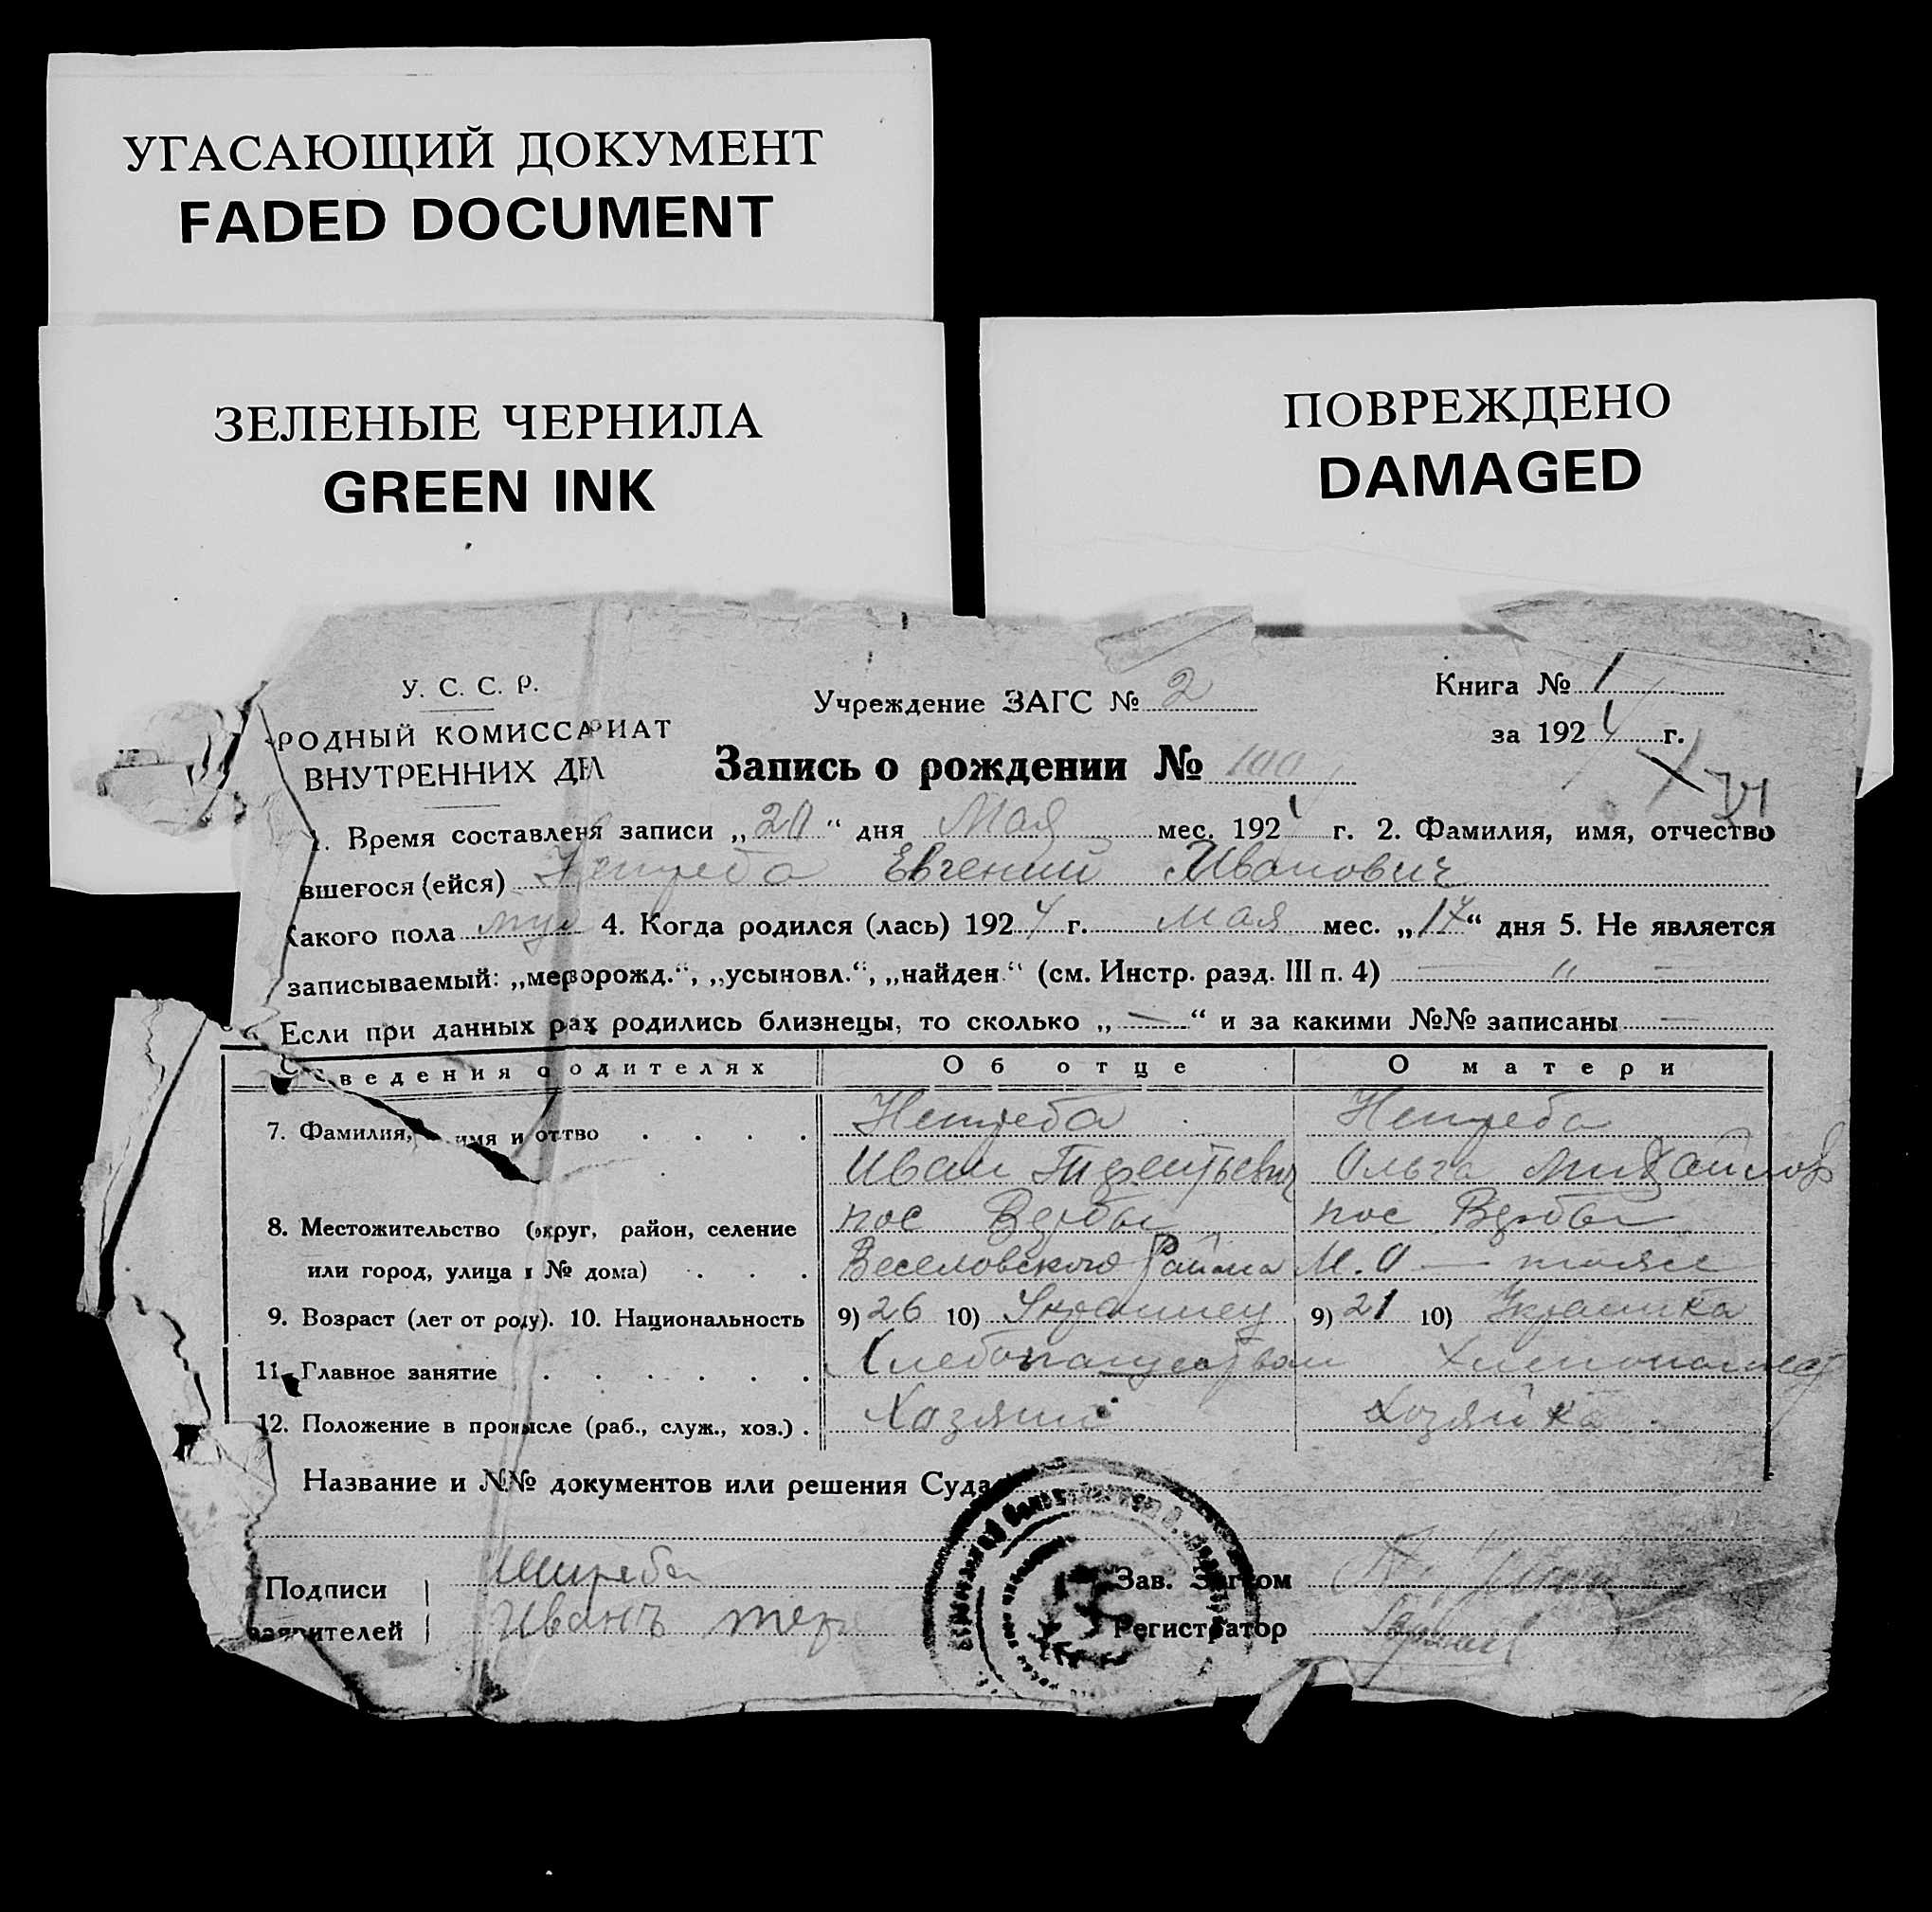 УГАСАЮЩИЙ ДОКУМЕНТ
FADED DOCUMENT
ЗЕЛЕНЫЕ ЧЕРНИЛА
GREEN INK
ПОВРЕЖДЕНО
DAMAGED
У. С. С. Р.
РОДНЫЙ КОМИССАРИАТ
ВНУТРЕННИХ ДЕЛ
Учреждение ЗАГС № 2
Книга № 1
за 1924 г.
Запись о рождении №
1. Время составленя записи „20“ дня Мая мес. 1924 г. 2. Фамилия, имя, отчество
вшегося (ейся) Непреба Евгений Иванович
какого пола муж 4. Когда родился (лась) 1924 г. мая мес. „17“ дня 5. Не является
записываемый: „мерворожд.“, „усыновл.“, „найден.“ (см. Инстр. разд. III п. 4) — „ —
Если при данных рах родились близнецы, то сколько „—“ и за какими №№ записаны —
Сведения о одителях Об отце О матери
7. Фамилия, имя и оттво Непреба Непреба
Иван Ольга Михайлов
8. Местожительство (округ, район, селение пос Вербы пос Вербы
или город, улица и № дома) Веселовского Района М.О — тоже
9. Возраст (лет от роду). 10. Национальность 9) 26 10) Украинец 9) 21 10) Украинка
11. Главное занятие Хлебопашеством
12. Положение в промысле (раб., служ., хоз.) Хозяин Хозяйка
Название и №№ документов или решения Суда
Подписи Непреба Зав. Загсом
заявителей Иванъ Регистратор